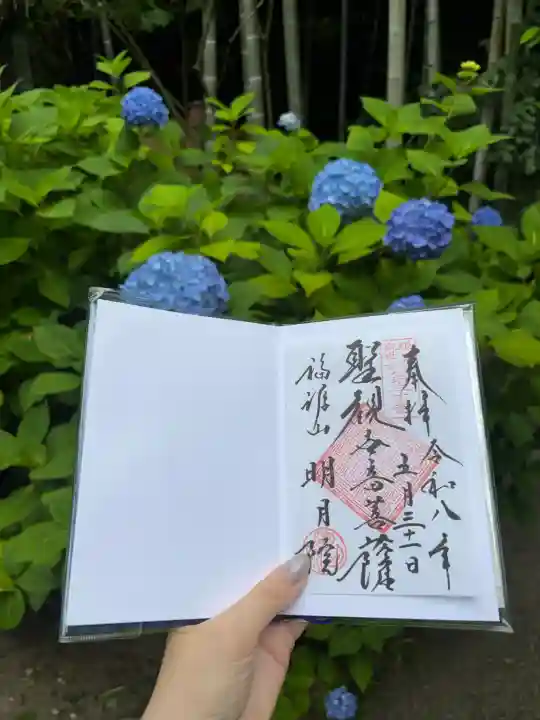 奉拝
令和八年
五月三十一日
聖観世音菩薩
福源山 明月院